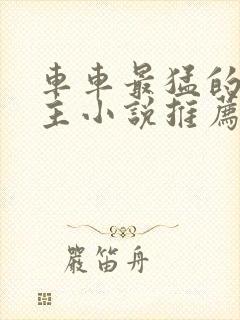 車車最猛的
主小說推薦
嚴笛丹